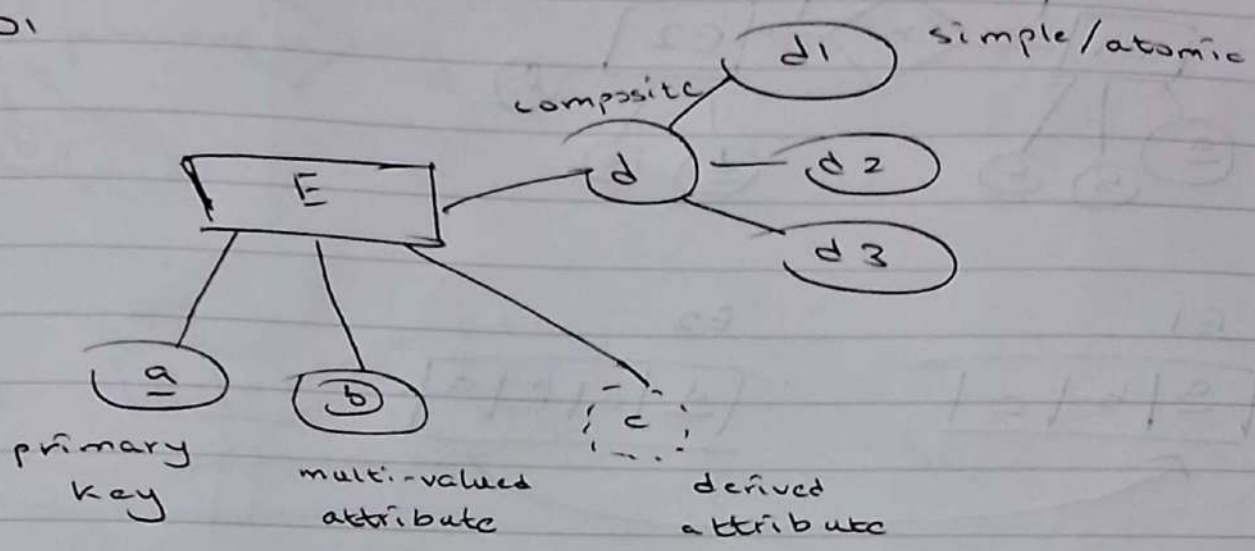 simple/atomic
d1
composite
d
d2
E
d3
a
b
c
primary
key
multi-valued
attribute
derived
attribute